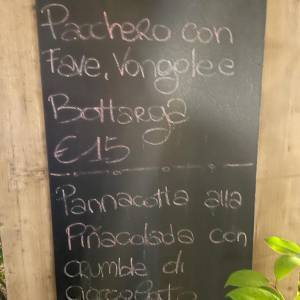 Pacchero con
Fave, Vongole e
Bottarga
€15
Pannacotta alla
Piñacolada con
crumble di